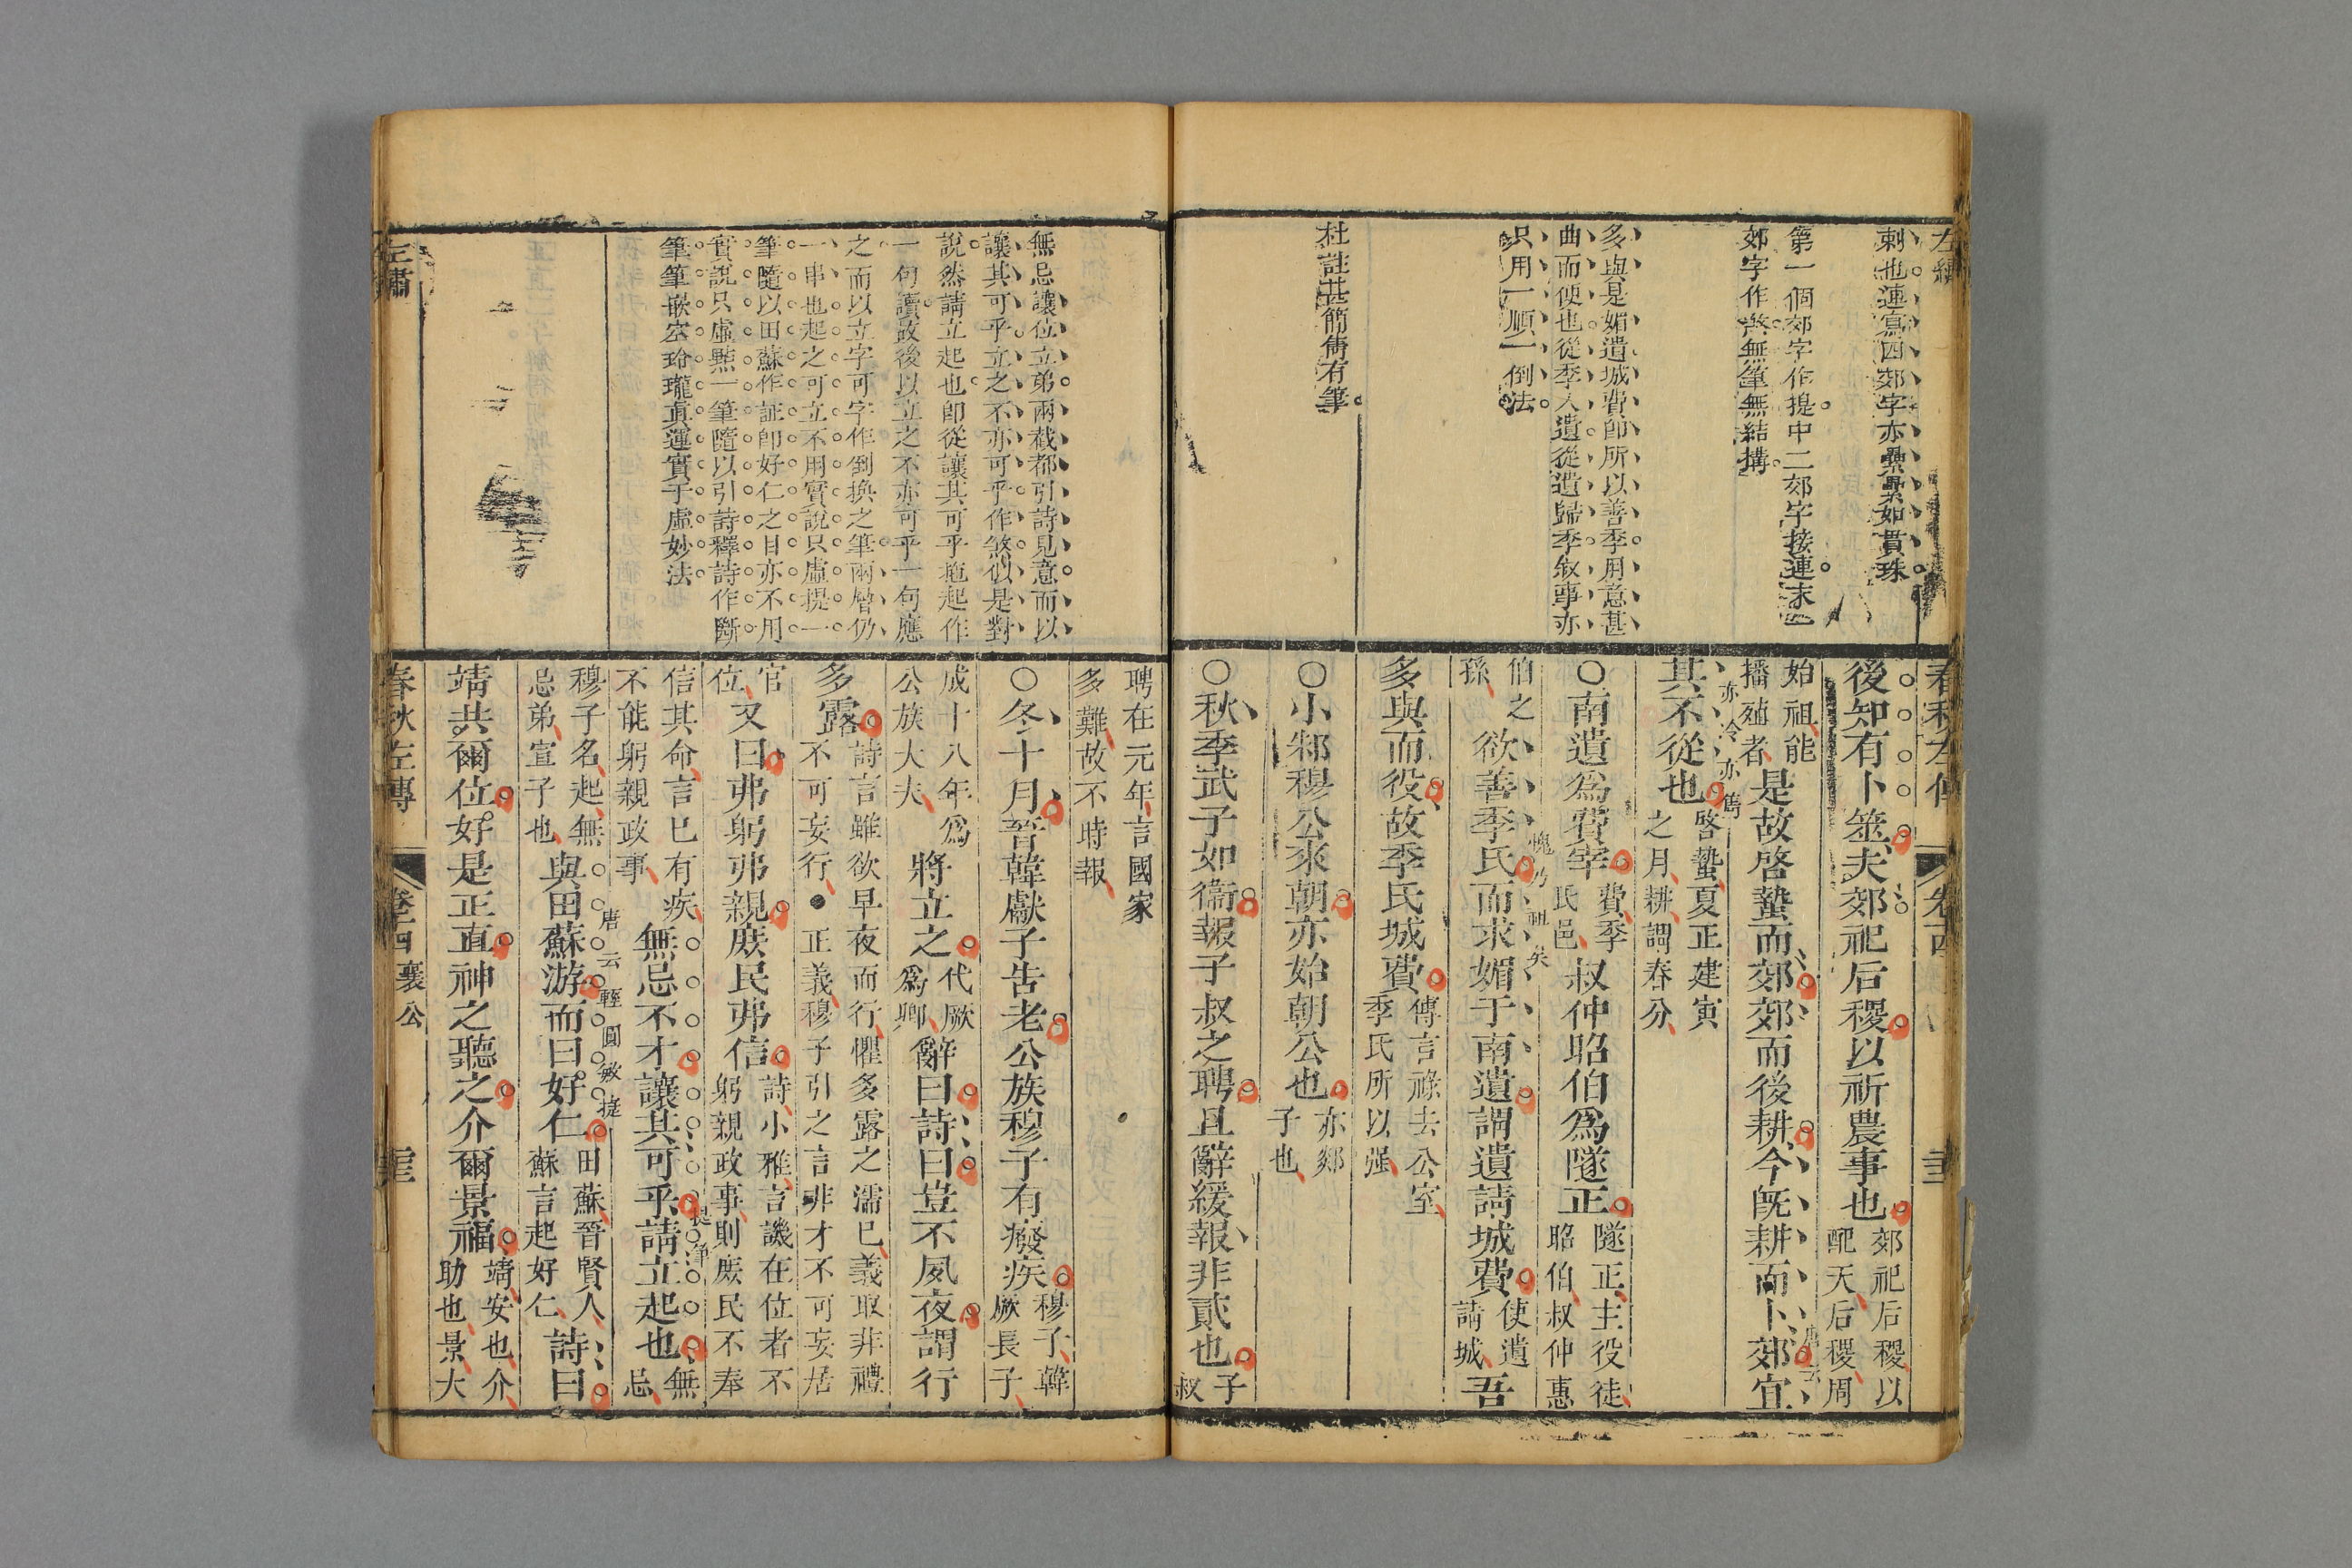 左繡
刺也連寫四郊字亦纍纍如貫珠
第一個郊字作提中二郊字接連末
郊字作煞無筆無結搆
多與是媚遺城費卽所以善季用意甚
曲而便也從季入遺從遺歸季敘事亦
只用一順一倒法
杜註甚簡雋有筆
春秋左傳
後知有卜筮夫郊祀后稷以祈農事也
郊祀后稷以
配天后稷周
始祖能
播殖者
是故啓蟄而郊郊而後耕今旣耕而卜郊宜
亦冷亦雋
其不從也
啓蟄夏正建寅
之月耕謂春分
○南遺爲費宰
費季
氏邑
叔仲昭伯爲隧正
隧正主役徒
昭伯叔仲惠
伯之
孫
欲善季氏而求媚于南遺謂遺請城費
使遺
請城
吾
多與而役故季氏城費
傳言祿去公室
季氏所以强
○小邾穆公來朝亦始朝公也
亦郯
子也
○秋季武子如衞報子叔之聘且辭緩報非貳也
子
叔
無忌讓位立弟兩截都引詩見意而以
讓其可乎立之不亦可乎作煞似是對
說然請立起也卽從讓其可乎拖起作
一句讀故後以立之不亦可乎一句應
之而以立字可字作倒換之筆兩層仍
一串也起之可立不用實說只虛提一
筆隨以田蘇作証卽好仁之目亦不用
實說只虛點一筆隨以引詩釋詩作斷
筆筆嵌空玲瓏眞運實于虛妙法
聘在元年言國家
多難故不時報
○冬十月晉韓獻子告老公族穆子有癈疾
穆子韓
厥長子
成十八年爲
公族大夫
將立之
代厥
爲卿
辭曰詩曰豈不夙夜謂行
多露
詩言雖欲早夜而行懼多露之濡已義取非禮
不可妄行●正義穆子引之言非才不可妄居
官
位
又曰弗躬弗親庶民弗信
詩小雅言譏在位者不
躬親政事則庶民不奉
信其命言已有疾
不能躬親政事
無忌不才讓其可乎請立起也
無
忌
穆子名起無
忌弟宣子也
與田蘇游而曰好仁
田蘇晉賢人
蘇言起好仁
詩曰
唐云輕圓敏捷
靖共爾位好是正直神之聽之介爾景福
靖安也介
助也景大
左繡
春秋左傳
襄公